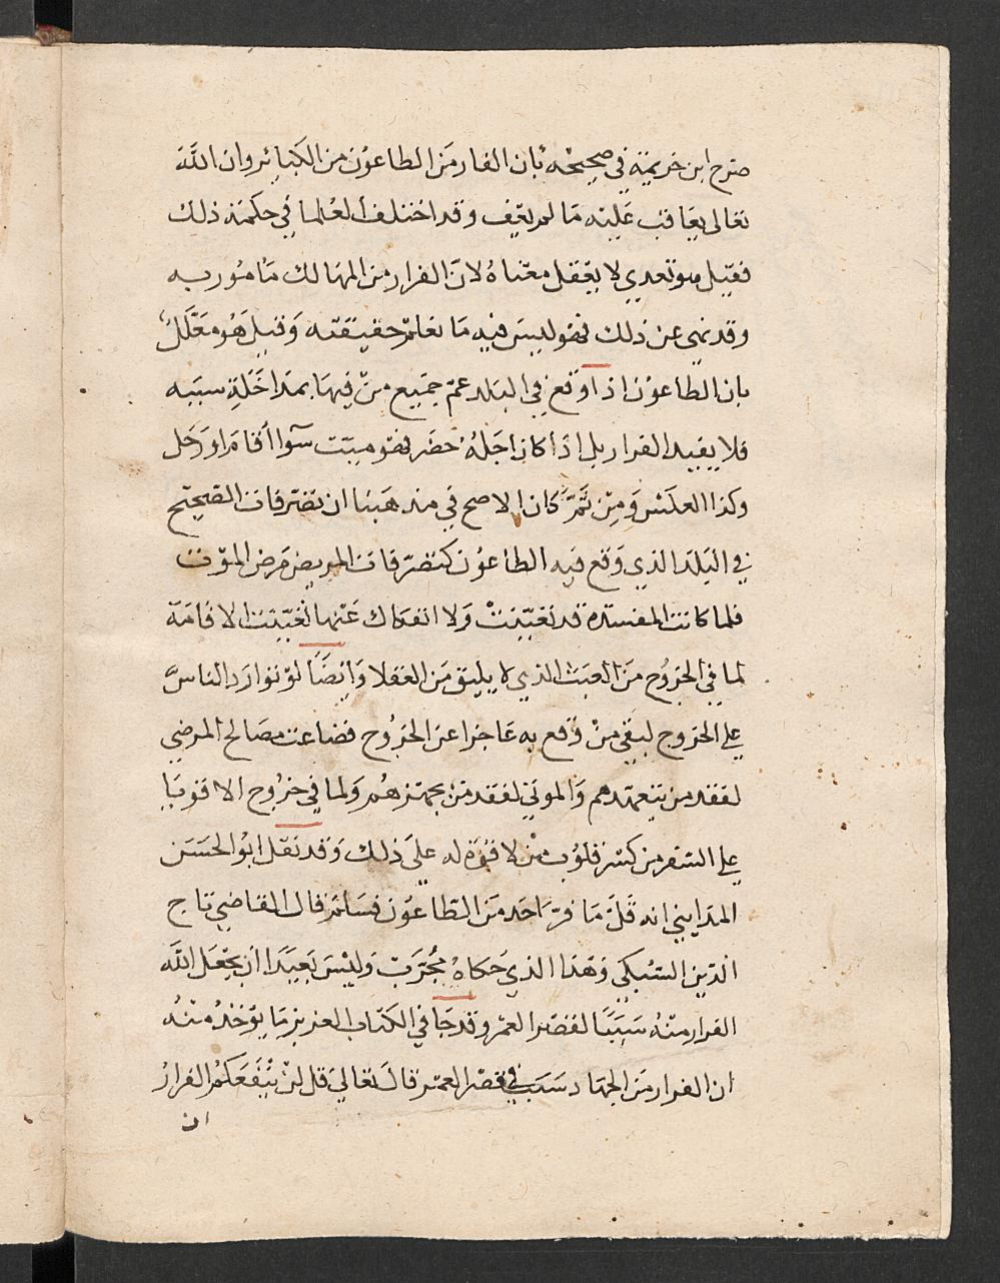 صرح ابن خزيمة في صحيحه بان الفار من الطاعون من الكبائر وان الله
تعالى يعاقب عليه ما لم يعف وقد اختلف العلما في حكمة ذلك
فقيل هو تعبدي لا يعقل معناه لان الفرار من المهالك مامور به
وقد نهي عن ذلك فهو ليس فيه ما نعلم حقيقته وقيل هو معلل
بان الطاعون اذا وقع في البلد عم جميع من فيها بمداخلة سببه
فلا يفيد الفرار بل اذا كان اجله حضر فهو ميت سوا اقام او رحل
وكذا العكس ومن ثم كان الاصح في مذهبنا ان تصرفات الصحيح
في البلد الذي وقع فيه الطاعون كتصرفات المريض مرض الموت
فلما كانت المفسدة قد تعينت ولا انفكاك عنها تعينت الاقامة
لما في الخروج من العبث الذي لا يليق من العقلا وايضا لو توارد الناس
على الخروج لبقي من وقع به عاجزا عن الخروج فضاعت مصالح المرضي
لفقد من يتعهدهم والموتي لفقد من يجهزهم ولما في خروج الاقويا
على السفر من كسر قلوب من لا قوة له على ذلك وقد نقل ابو الحسن
المدايني انه قل ما فر احد من الطاعون فسلم قال القاضي تاج
الدين السبكي وهذا الذي حكاه مجرب وليس بعيدا ان يجعل الله
الفرار منه سببا لقصر العمر وقد جا في الكتاب العزيز ما يوخذ منه
ان الفرار من الجهاد سبب في قصر العمر قال تعالى قل لن ينفعكم الفرار
ان